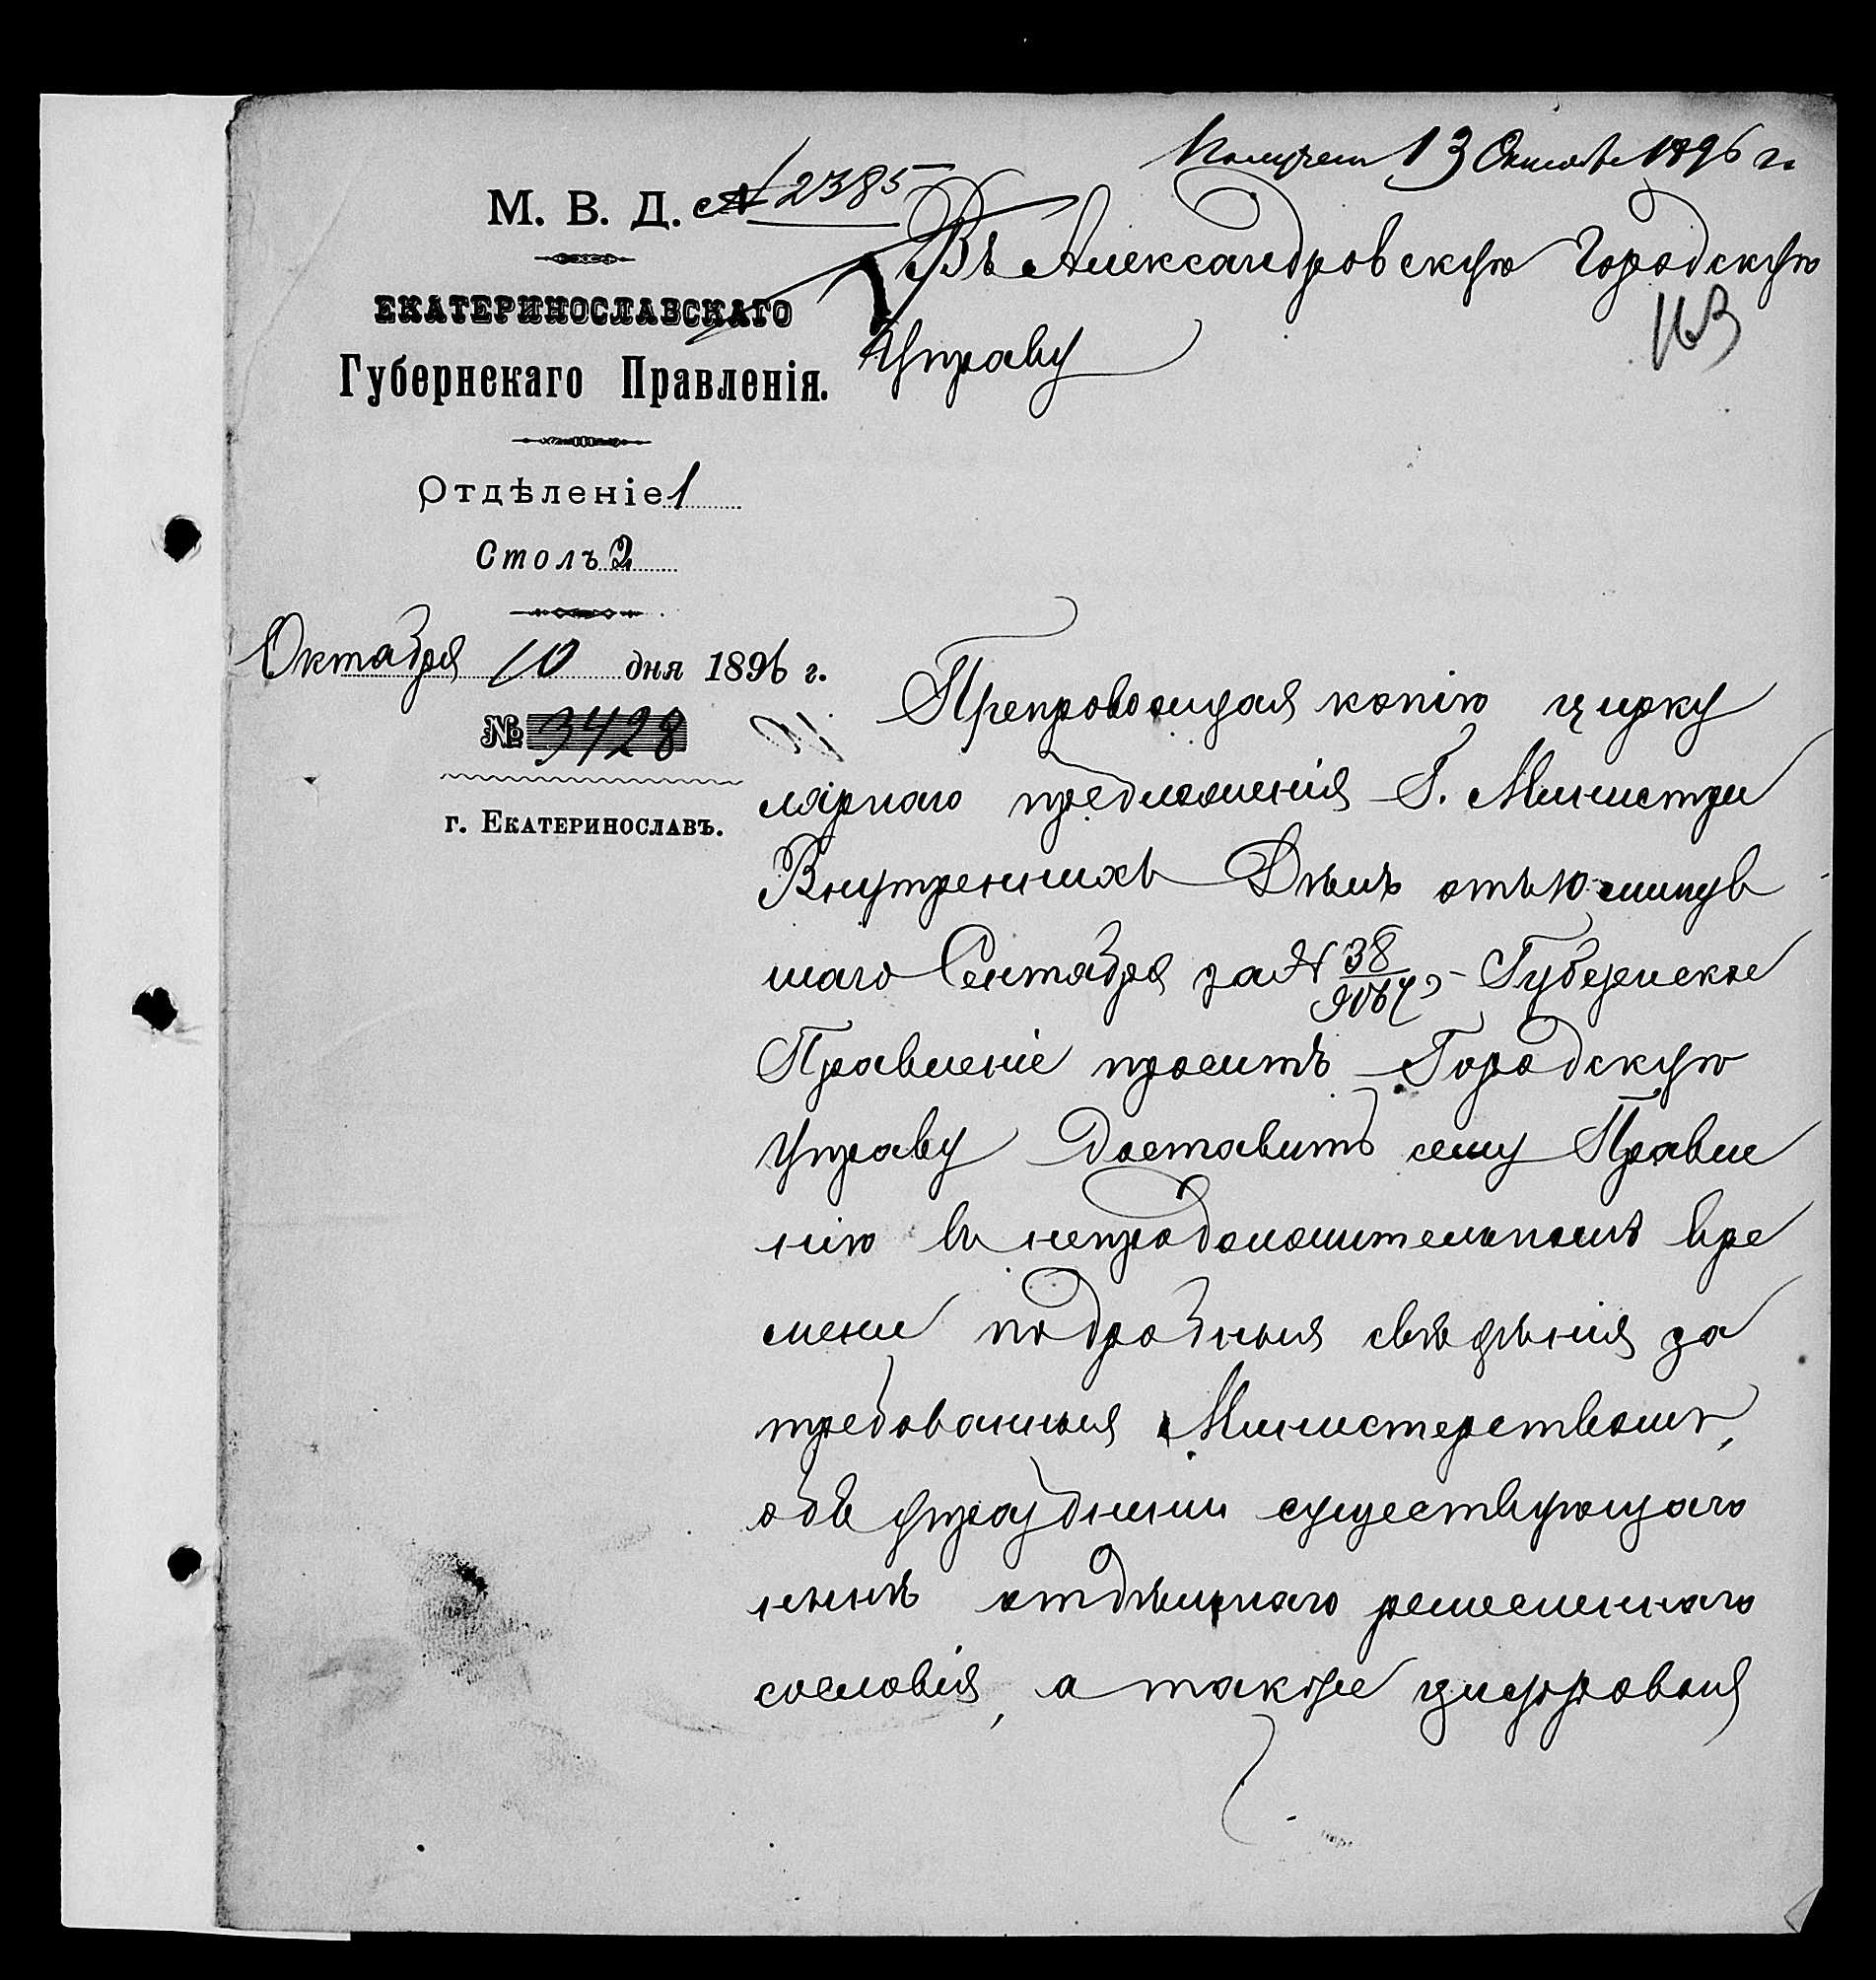 Получен 13 Октября 1896 г.
М. В. Д. № 2385
Въ Александровскую Городскую
Управу
ЕКАТЕРИНОСЛАВСКАГО
Губернскаго Правленія.
Отдѣленіе 1
Столъ 2
Октября 10 дня 1896 г.
№ 3428
г. Екатеринославъ.
Препровождая копію цирку
лярнаго предложенія Г. Министра
Внутреннихъ Дѣлъ отъ 10 минув
шаго Сентября за № 38, Губернское
Правленіе проситъ Городскую
Управу доставить сему Правле
нію въ непродолжительномъ вре
мени подробныя свѣдѣнія за
требованныя Министерствомъ,
объ упраздненіи существующаго
нынѣ отдѣльнаго ремесленнаго
сословія, а также цифровыя